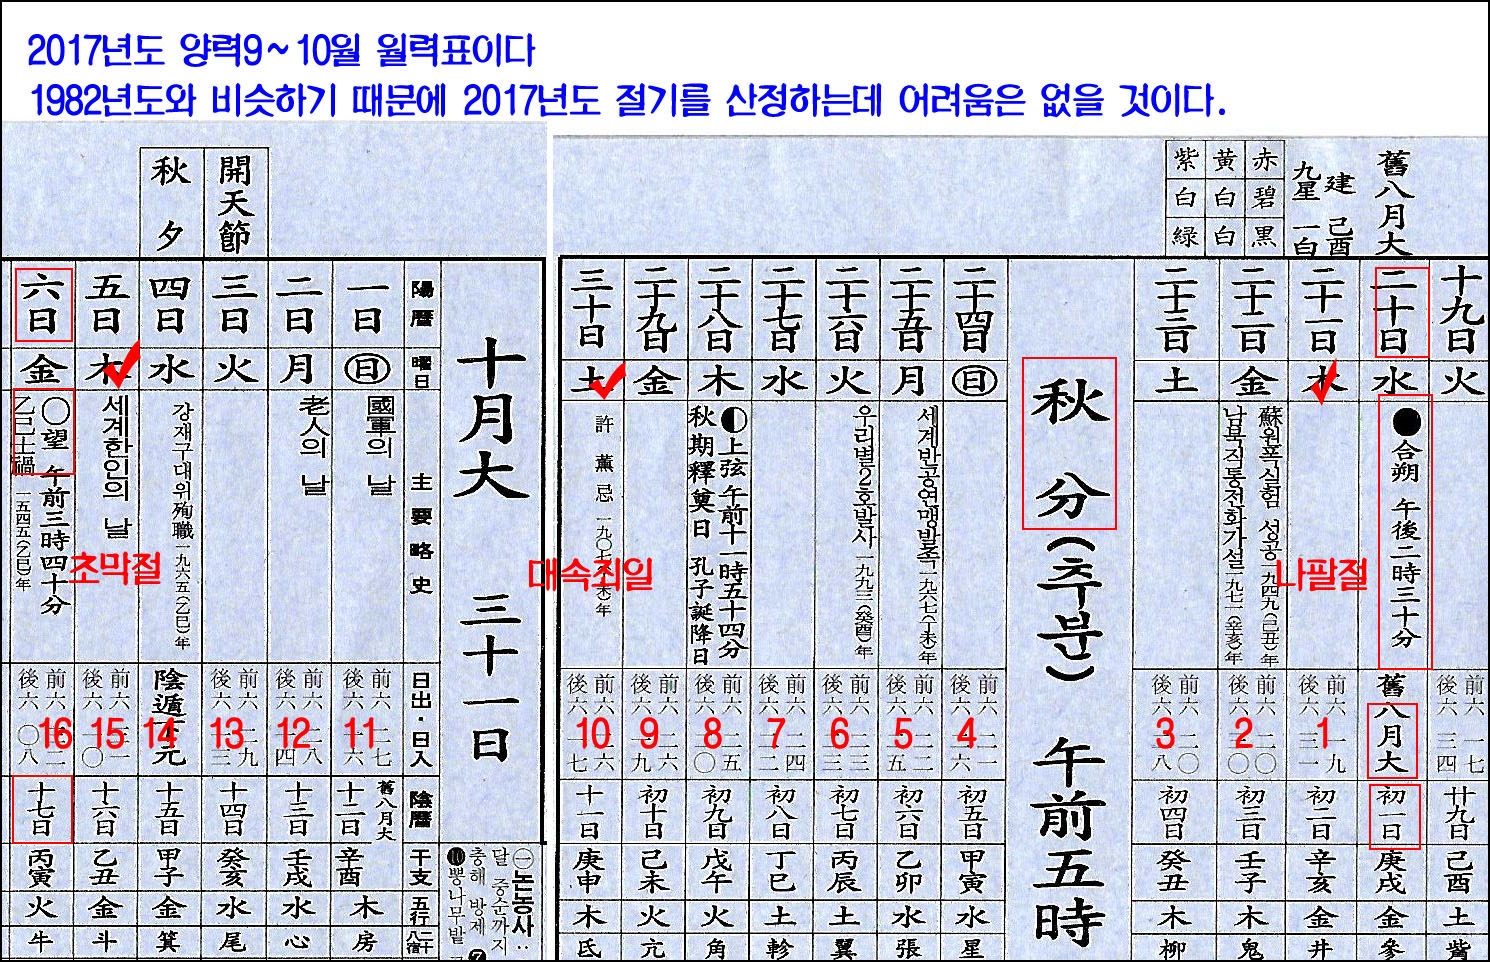 2017년도 양력9~10월 월력표이다
1982년도와 비슷하기 때문에 2017년도 절기를 산정하는데 어려움은 없을 것이다.
舊八月大
建 己酉
九星 一白
赤 碧 黒
黄 白 白
紫 白 緑
十九日
火
前六 一七
後六 三四
廿九日
己酉
土
觜
二十日
水
●合朔 午後二時三十分
舊八月大
初一日
庚戌
金
參
二十一日
木
나팔절
1
前六 一九
後六 三一
初二日
辛亥
金
井
二十二日
金
蘇원폭실험 성공 一九四九(己丑)年
남북직통전화가설 一九七一(辛亥)年
2
前六 二〇
後六 三〇
初三日
壬子
木
鬼
二十三日
土
3
前六 二〇
後六 二八
初四日
癸丑
木
柳
秋分(추분) 午前五時
二十四日
日
4
前六 二一
後六 二六
初五日
甲寅
水
星
二十五日
月
세계반공연맹발족 一九六七(丁未)年
5
前六 二二
後六 二五
初六日
乙卯
水
張
二十六日
火
우리별2호발사 一九九三(癸酉)年
6
前六 二三
後六 二三
初七日
丙辰
土
翼
二十七日
水
7
前六 二四
後六 二二
初八日
丁巳
土
軫
二十八日
木
上弦 午前十一時五十四分
秋期釋奠日 孔子誕降日
8
前六 二五
後六 二〇
初九日
戊午
火
角
二十九日
金
9
前六 二六
後六 一九
初十日
己未
火
亢
三十日
土
許薰忌 一九〇七(丁未)年
대속죄일
10
前六 二六
後六 一七
十一日
庚申
木
氐
十月大 三十一日
㊀논농사:
달 중순까지
충해 방제
❿뽕나무밭
陽曆
曜日
主要略史
日出·日入
陰曆
干支
五行
二十八宿
一日
日
國軍의 날
11
前六 二七
後六 一六
舊八月大
十二日
辛酉
木
房
二日
月
老人의 날
12
前六 二八
後六 一四
十三日
壬戌
水
心
開天節
三日
火
13
前六 二九
後六 一三
十四日
癸亥
水
尾
秋夕
四日
水
강재구대위殉職 一九六五(乙巳)年
14
陰遁下元
十五日
甲子
金
箕
五日
木
세계한인의 날
초막절
15
前六 三一
後六 一〇
十六日
乙丑
金
斗
六日
金
○望 午前三時四十分
乙巳士禍 一五四五(乙巳)年
16
前六 三二
後六 〇八
十七日
丙寅
火
牛